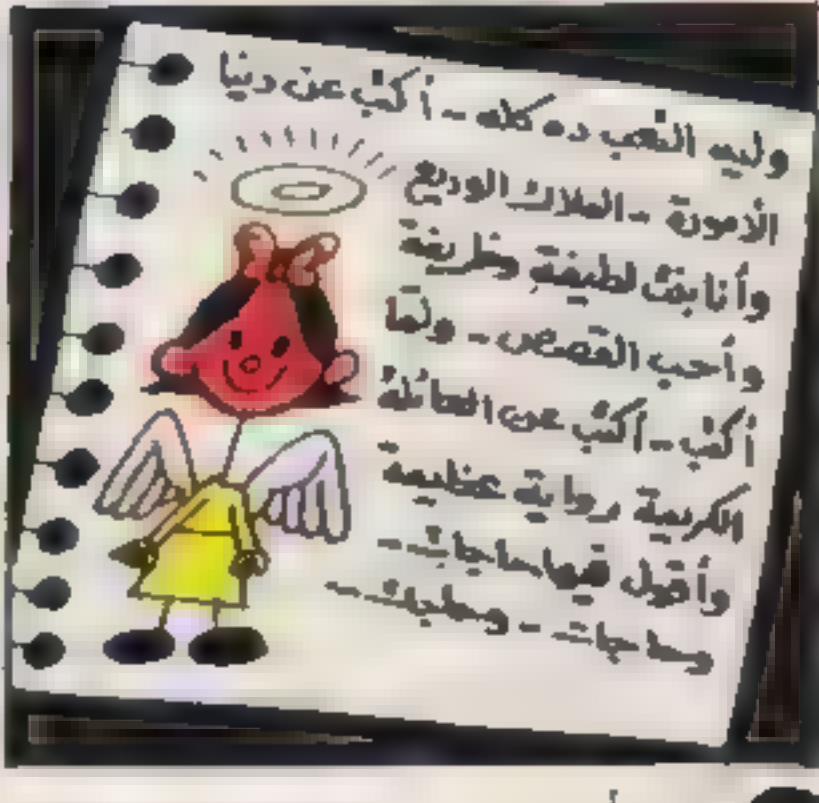 وليه التعب ده كله - أكتب عن دنيا
الأمورة - الملاك الوديع
وأنا بنت لطيفة وظريفة
وأحب القصص - ولما
أكتب - أكتب عن العائلة
الكريمة رواية عظيمة
وأقول فيها حاجات -
وحاجات - وحاجات -